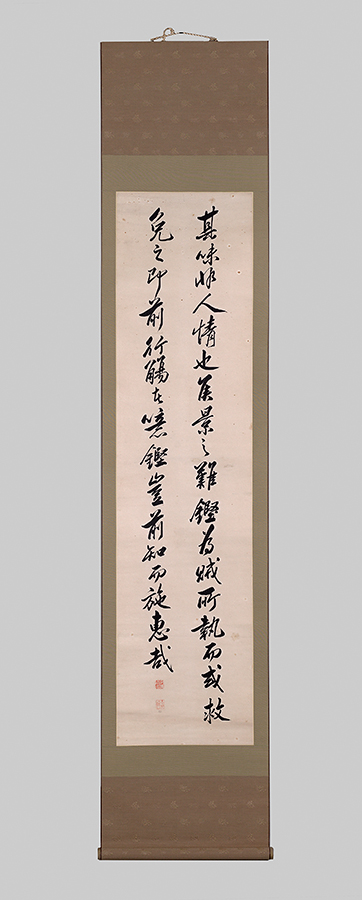 其味非人情也侯景之難鏗為賊所執而或救
免之即前行觴者噫鏗豈前知而施惠哉